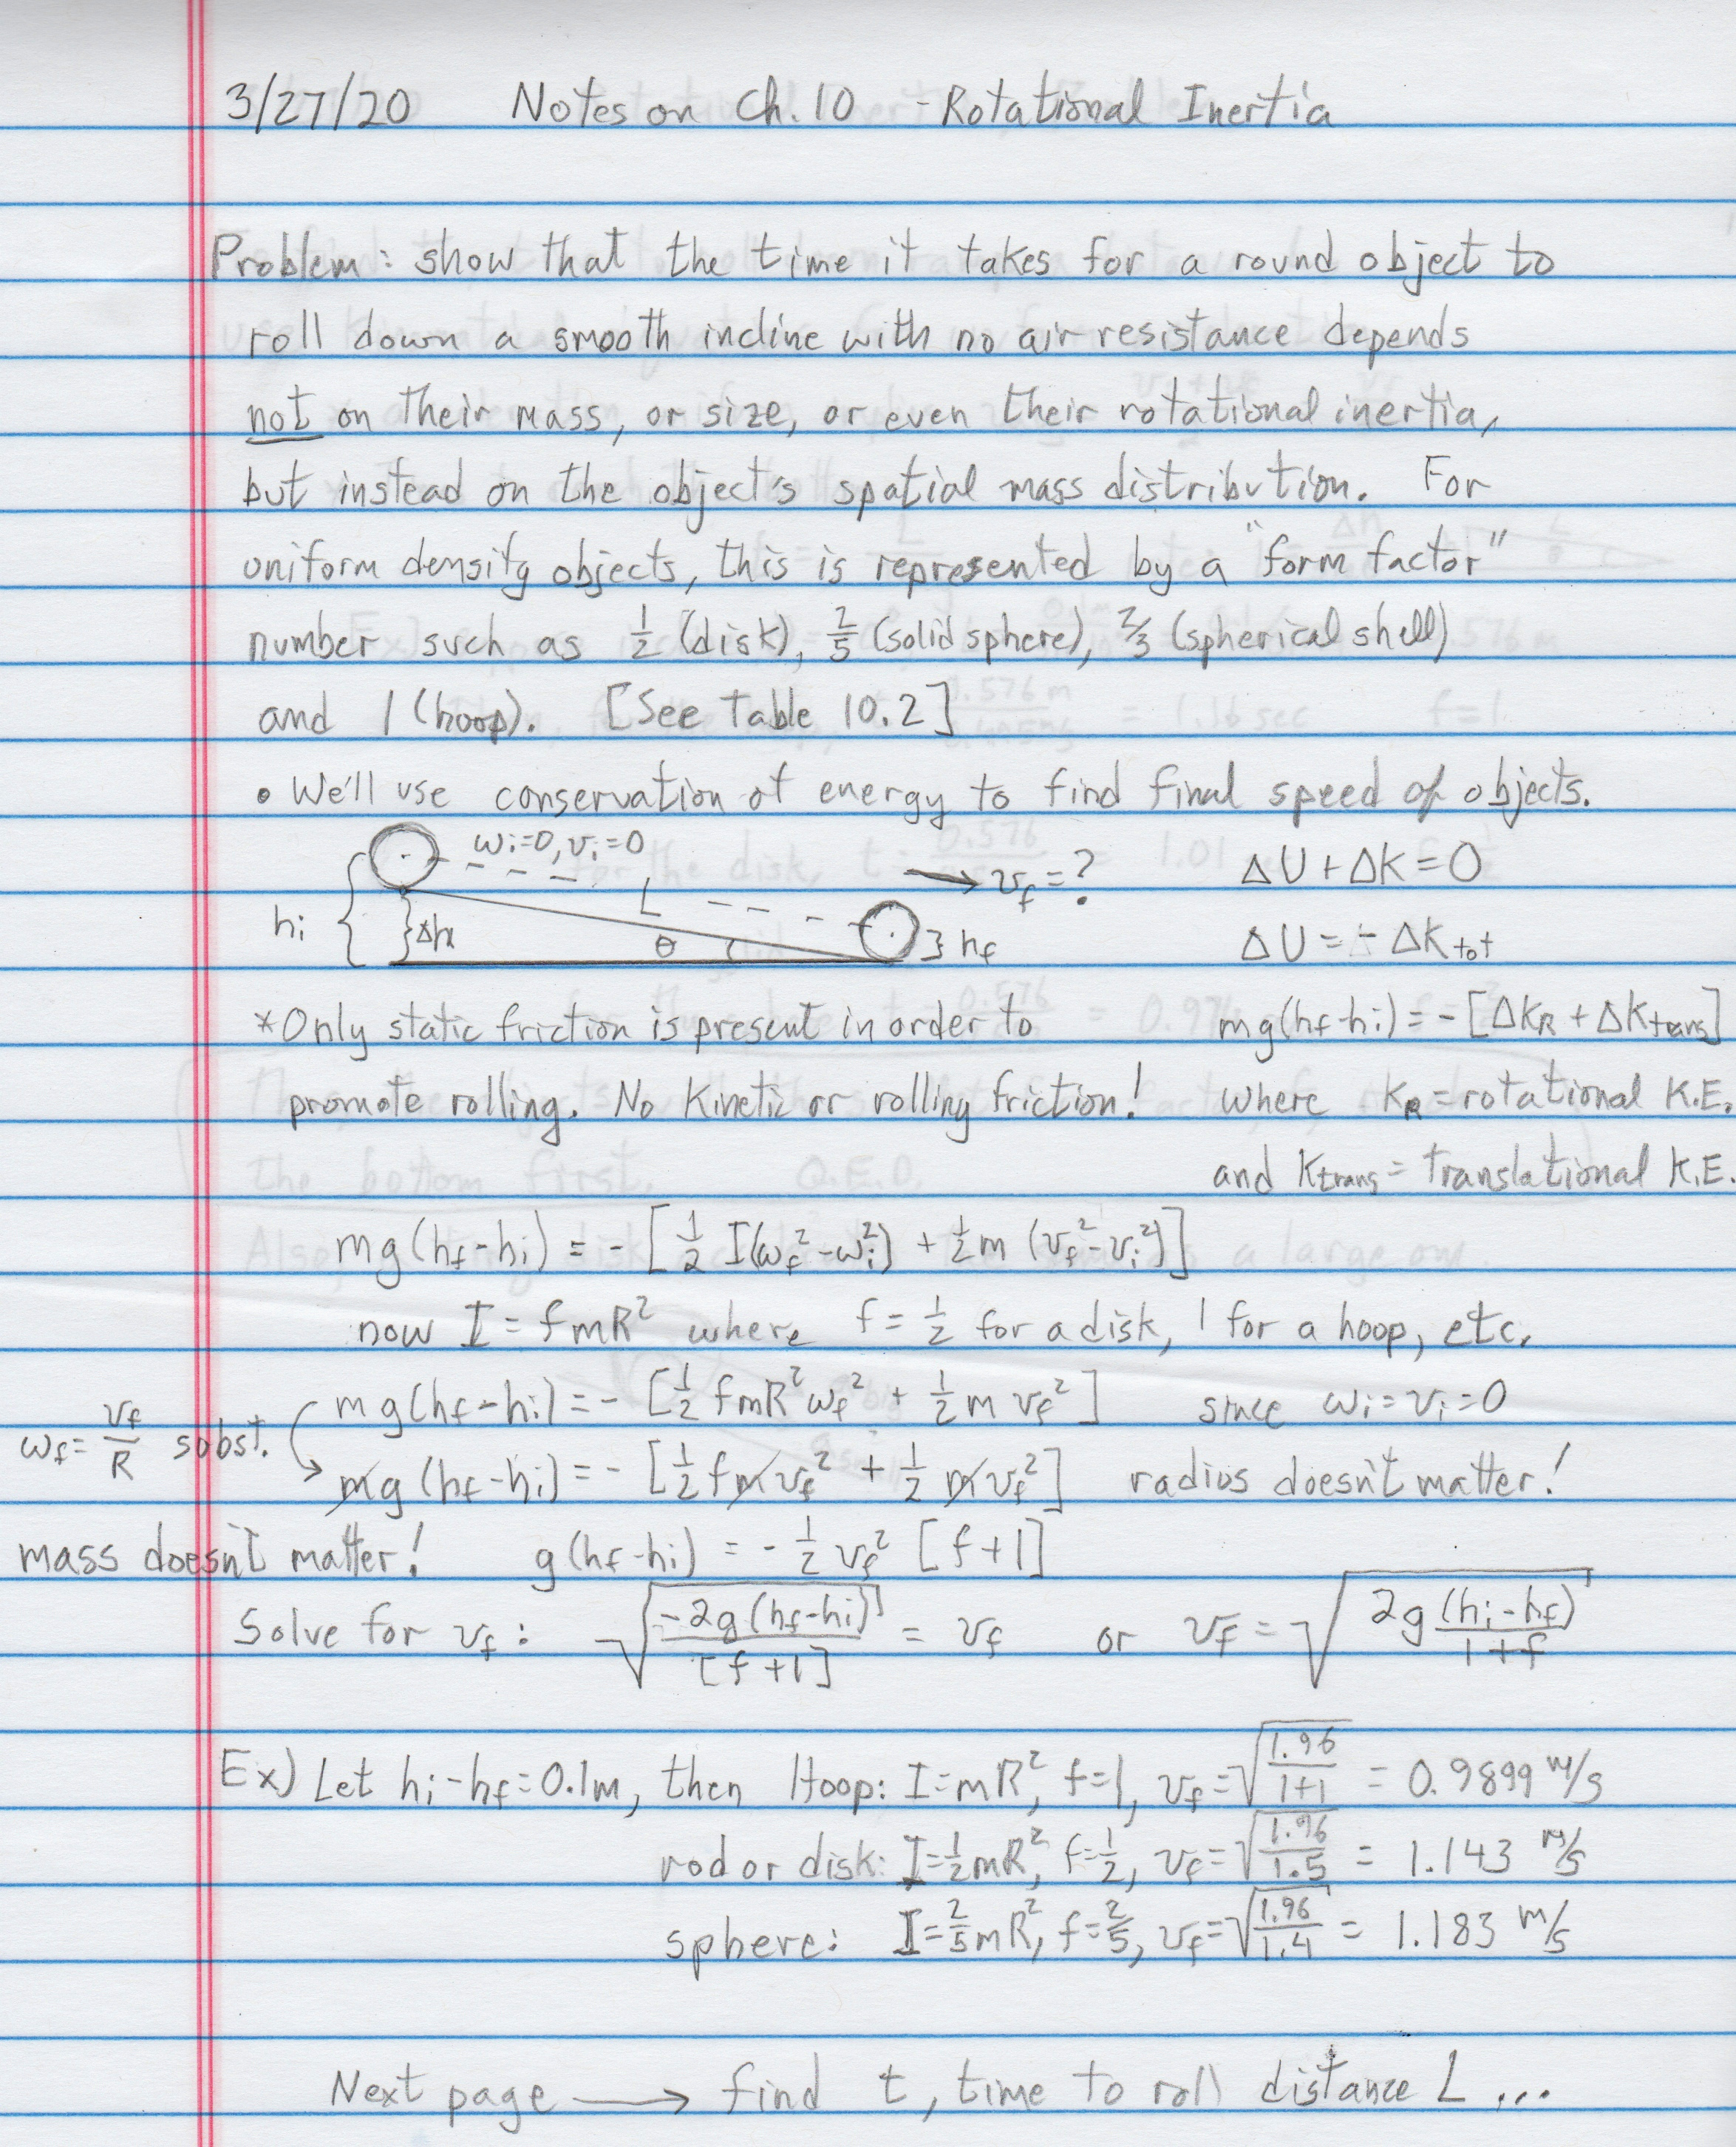 3/27/20 Notes on Ch. 10 - Rotational Inertia
Problem: show that the time it takes for a round object to
roll down a smooth incline with no air resistance depends
not on their mass, or size, or even their rotational inertia,
but instead on the object's spatial mass distribution. For
uniform density objects, this is represented by a "form factor"
number such as 1/2 (disk), 2/5 (solid sphere), 2/3 (spherical shell)
and 1 (hoop). [See Table 10.2]
• We'll use conservation of energy to find final speed of objects.
ωi=0, vi=0
L
→ vf = ?
ΔU + ΔK = 0
hi { } Δh
θ
} hf
ΔU = - ΔKtot
*Only static friction is present in order to
mg(hf-hi) = -[ΔKR + ΔKtrans]
promote rolling. No Kinetic or rolling friction!
where KR = rotational K.E.
and Ktrans = translational K.E.
mg(hf-hi) = -[1/2 I(ωf²-ωi²) + 1/2 m (vf²-vi²)]
now I = fmR² where f = 1/2 for a disk, 1 for a hoop, etc.
mg(hf-hi) = -[1/2 fmR²ωf² + 1/2 m vf²] since ωi = vi = 0
ωf = vf/R subst.
mg(hf-hi) = -[1/2 fmvf² + 1/2 mvf²] radius doesn't matter!
mass doesn't matter! g(hf-hi) = -1/2 vf² [f+1]
Solve for vf: √(-2g(hf-hi)/[f+1]) = vf or vf = √(2g(hi-hf)/(1+f))
Ex) Let hi-hf = 0.1m, then Hoop: I=mR², f=1, vf=√(1.96/(1+1)) = 0.9899 m/s
rod or disk: I=1/2 mR², f=1/2, vf=√(1.96/1.5) = 1.143 m/s
sphere: I=2/5 mR², f=2/5, vf=√(1.96/1.4) = 1.183 m/s
Next page → find t, time to roll distance L ...